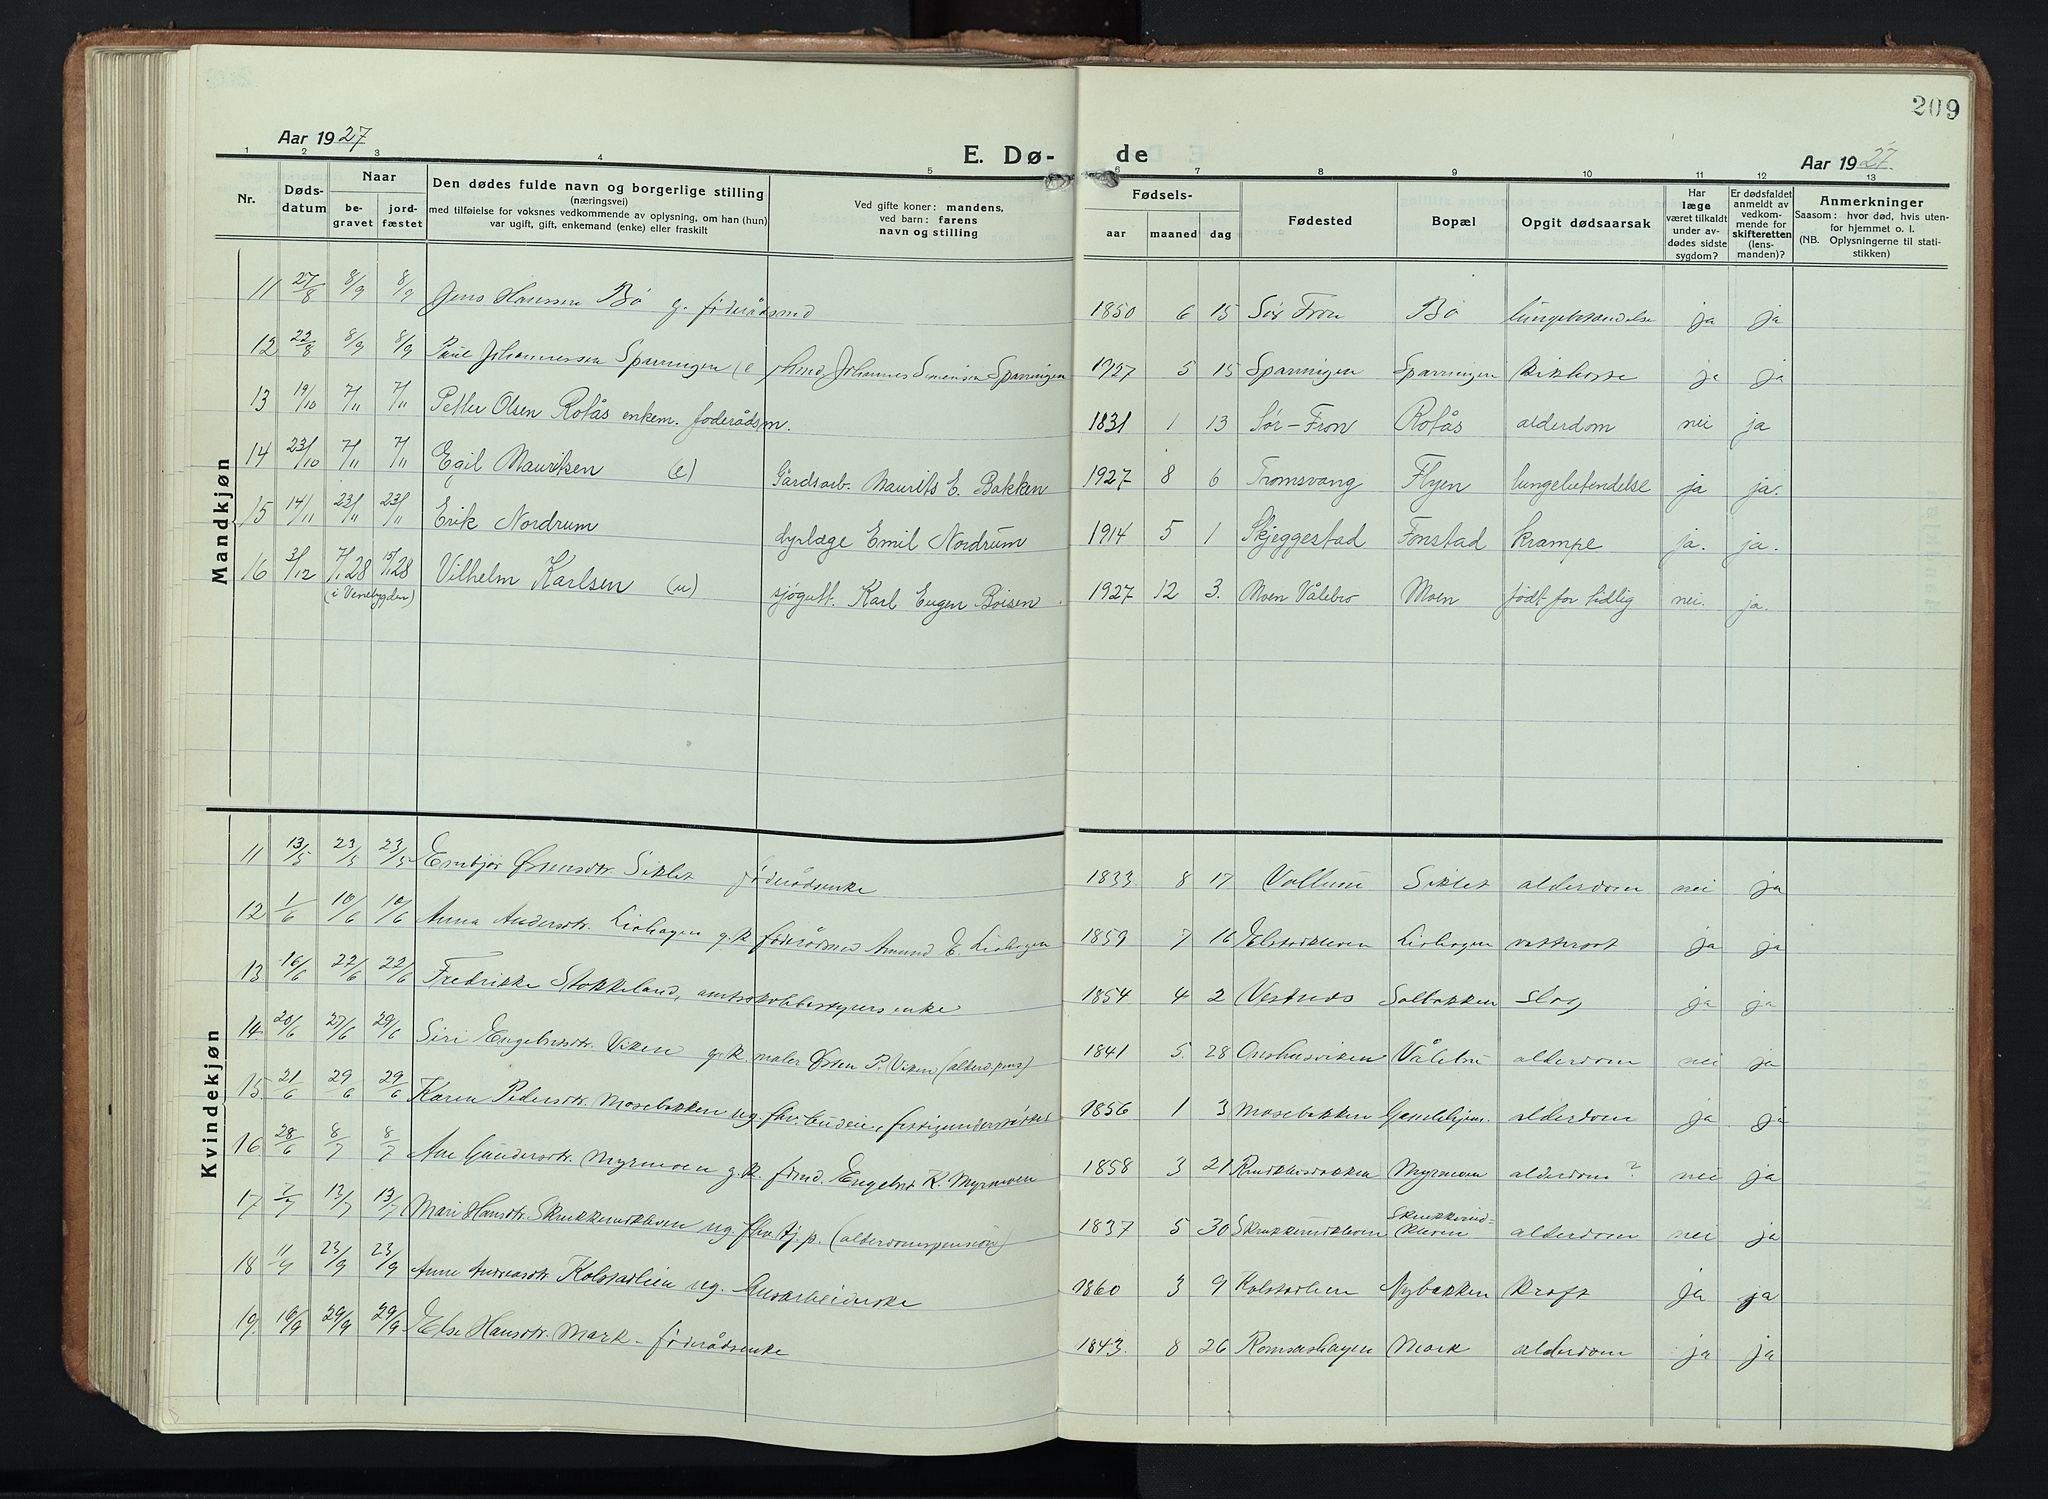 209
Aar 1927
E. Dø- de
Aar 1927.
1 2 3 4 5 6 7 8 9 10 11 12 13
Nr.
Døds-
datum
Naar
be-
gravet
jord-
fæstet
Den dødes fulde navn og borgerlige stilling
(næringsvei)
med tilføielse for voksnes vedkommende av oplysning, om han (hun)
var ugift, gift, enkemand (enke) eller fraskilt
Ved gifte koner: mandens,
ved barn: farens
navn og stilling
Fødsels-
aar maaned dag
Fødested
Bopæl
Opgit dødsaarsak
Har
læge
været tilkaldt
under av-
dødes sidste
sygdom?
Er dødsfaldet
anmeldt av
vedkom-
mende for
skifteretten
(lens-
manden)?
Anmerkninger
Saasom: hvor død, hvis uten-
for hjemmet o. l.
(NB. Oplysningerne til stati-
stikken)
Mandkjøn
11 27/8 8/9 8/9 Jens Hanssen Bø g. føderådsmd 1850 6 15 Sør Fron Bø lungebetændelse ja ja
12 22/8 8/9 8/9 Paul Johannessen Sparningen (e) Johannes Simensen Sparningen 1927 5 15 Sparningen Sparningen kikhoste ja ja
13 19/10 7/11 7/11 Petter Olsen Rofås enkem. foderådsm. 1831 1 13 Sør-Fron Rofås alderdom nei ja
14 23/10 7/11 7/11 Egil Mauritsen (e) Gårdsarb. Maurits E. Bakken 1927 8 6 Tromsvang Flyen lungebetendelse ja ja.
15 14/11 23/11 23/11 Erik Nordrum dyrlæge Emil Nordrum 1914 5 1 Skjeggestad Fonstad krampe ja. ja.
16 31/12 7/1 28 15/1 28 Vilhelm Karlsen (u) sjøgutt. Karl Eugen Boisen. 1927 12 3. Moen Vålebro Moen født for tidlig nei. ja.
(i Venebygden)
Kvindekjøn
11 13/5 23/5 23/5 Embjør Østensdtr. Siklet føderådsenke 1833. 8 17 Vollum Siklet alderdom nei ja
12 1/6 10/6 10/6 Anna Andersdtr. Liehagen g. k. føderådsmd Amund E. Liehagen 1859 7 16 Elstadkleven Liehagen vattersot ja ja
13 16/6 22/6 22/6 Fredrikke Stokkeland, amtsskolebestyrersenke 1854 4 2 Vestnes Solbakken slag ja ja
14. 20/6 27/6 29/6 Siri Engebretsdtr. Viken g. k. maler Østen P. Viken (alderd.pens) 1841 5. 28 Onshusviken Vålebru alderdom nei ja
15 21/6 29/6 29/6 Karen Pedersdtr. Mosebakken ug. fhv. budeie, fattigunderstøttet 1856 1 3 Mosebakken Gamlehjem. alderdom ja ja
16 28/6 8/7 8/7 Ane Gundersdtr. Myrmoen g. k. førmd. Engebret K. Myrmoen 1858 3 21 Myrmoen alderdom? nei ja
17 7/7 13/7 13/7 Mari Hansdtr. Skrukkerudkleven ug. fhv. tj. p. (alderdomspension) 1837 5 30 Skrukkerudkleven Skrukkerud-
kleven alderdom nei ja
18 11/9 23/9 23/9 Anne Andreasdtr Kolstadlien ug. Gaardarbeiderske 1860 3 9 Kolstadlien Nybakken kræft ja ja
19. 16/9 29/9 29/9 Else Hansdtr. Mark - føderådsenke 1843. 8 26 Romsåshagen Mark alderdom ja ja